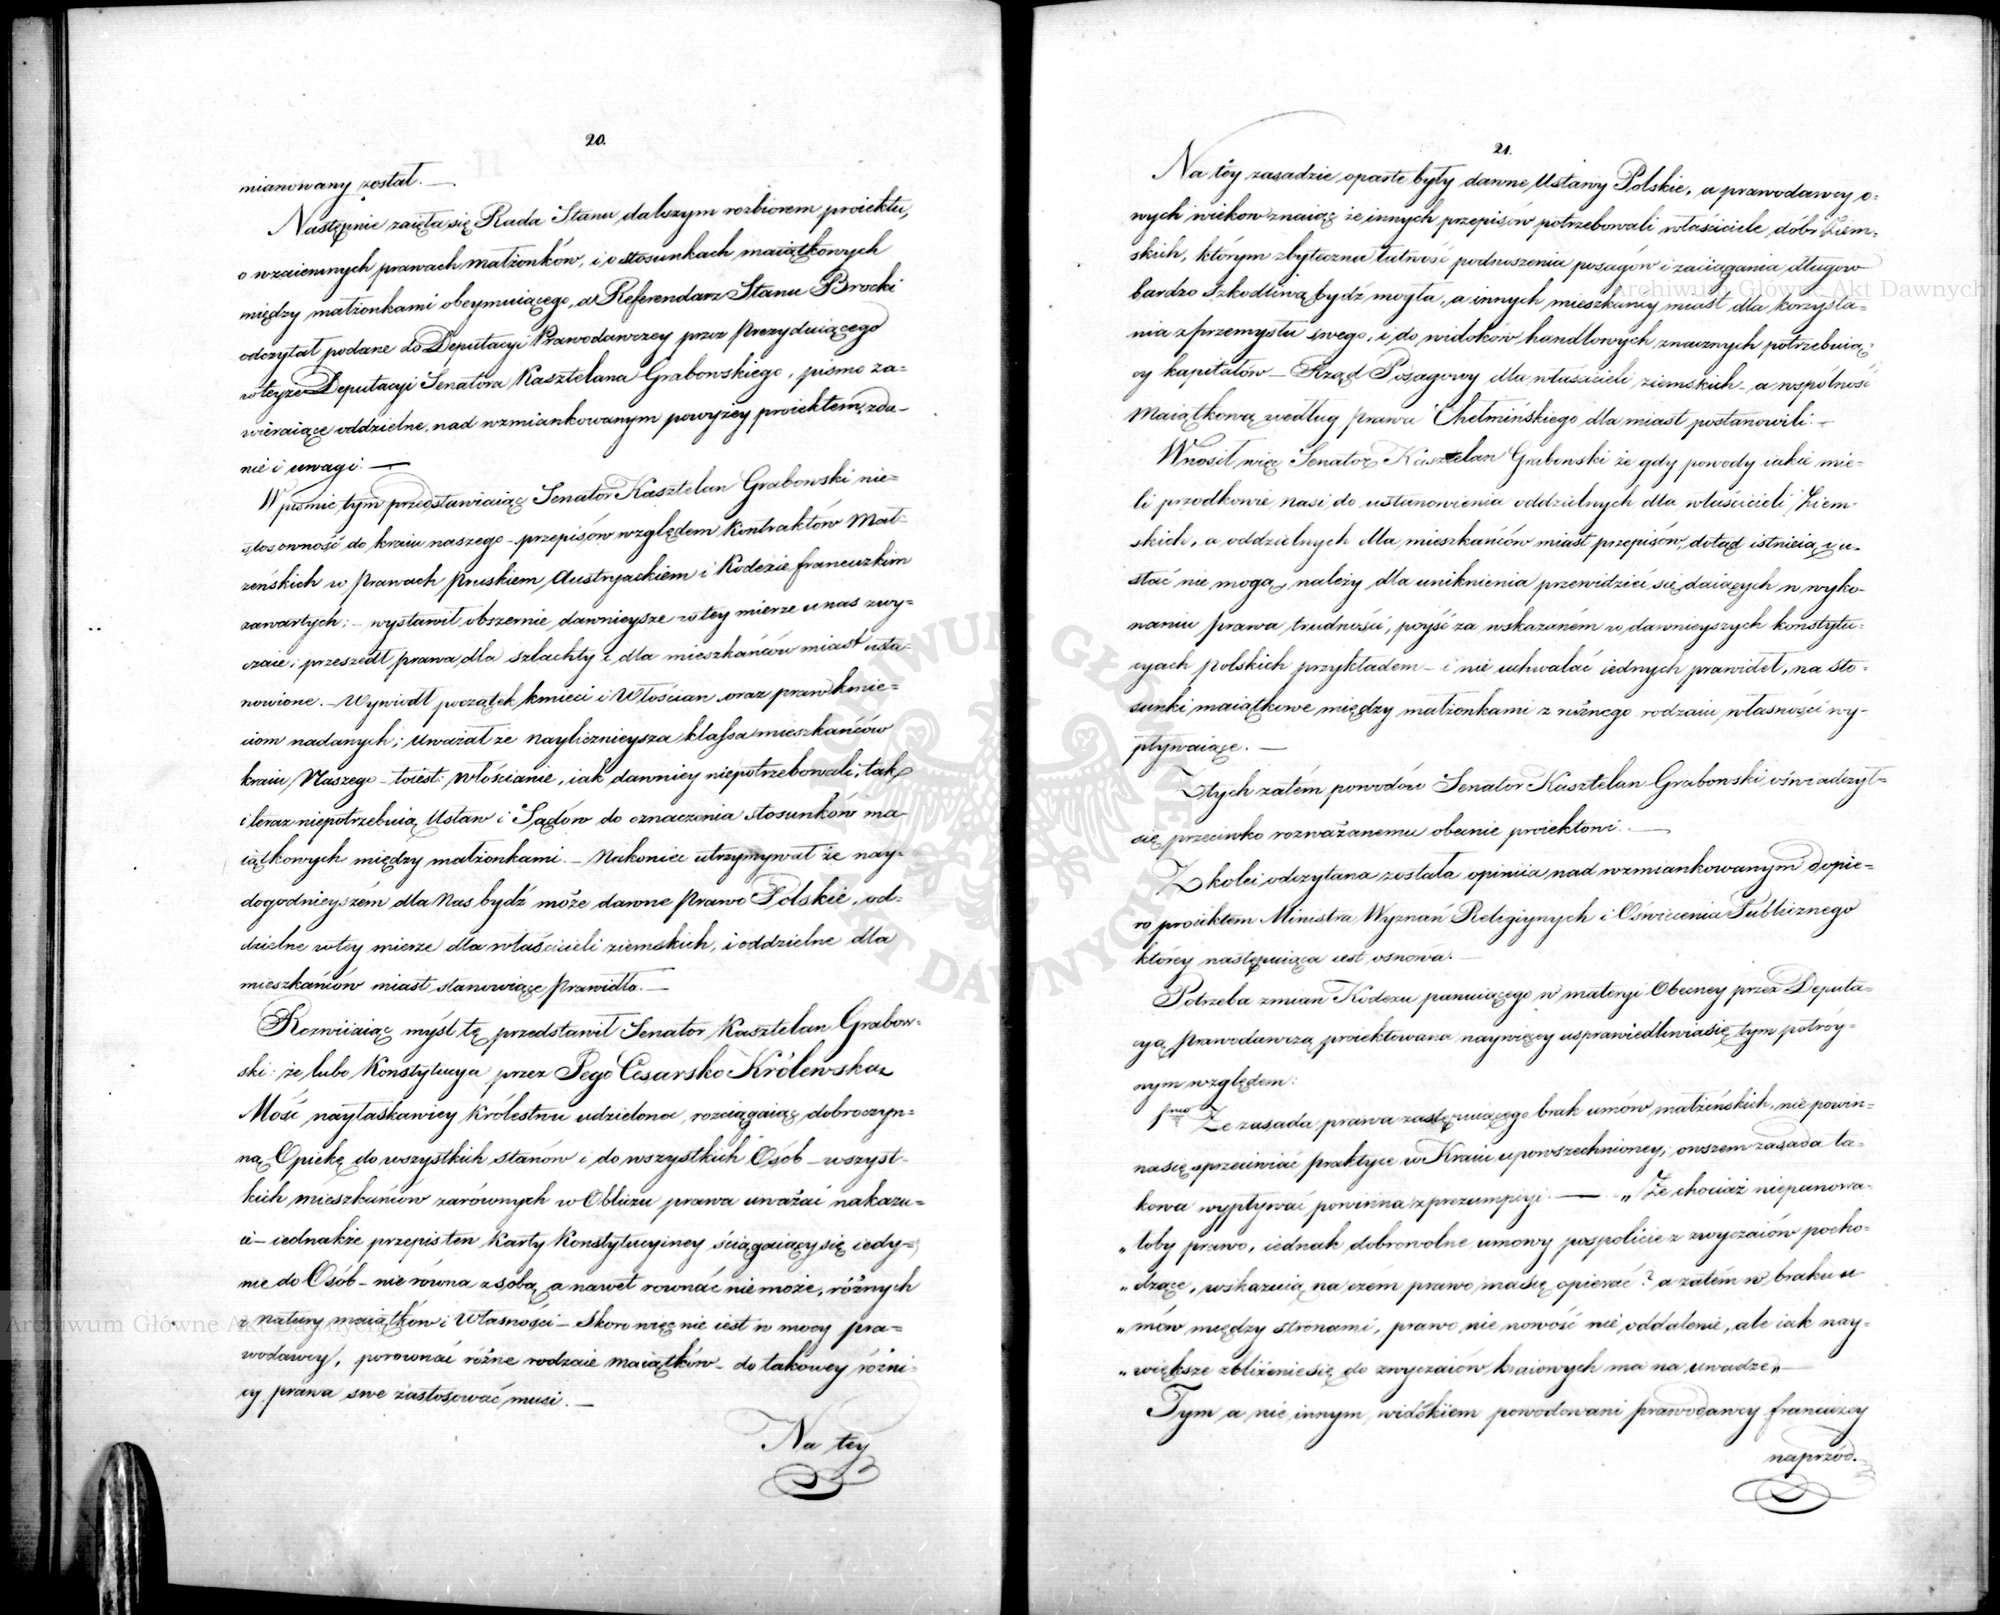 20.
mianowany został. —
Następnie zaięła się Rada Stanu dalszym rozbiorem proiektu,
o wzaiemnych prawach małżonków, i o stosunkach maiątkowych
między małżonkami obeymuiącego, a Referendarz Stanu Brocki
odczytał podane do Deputacyi Prawodawczey przez Prezyduiącego
w teyże Deputacyi Senatora Kasztelana Grabowskiego, pismo za-
wieraiące oddzielne, nad wzmiankowanym powyżey proiektem, zda-
nie i uwagi. —
W piśmie tym przedstawiaiąc Senator Kasztelan Grabowski nie-
stosowność do kraiu naszego - przepisów względem Kontraktów Mał-
żeńskich w Prawach Pruskiem, Austryackiem i Kodexie francuzkim
zawartych: - wystawił obszernie dawnieysze w tey mierze u nas zwy-
czaie; przeszedł prawa dla szlachty i dla mieszkańców miast usta-
nowione. - Wywiódł początek kmieci i Włościan, oraz praw kmie-
ciom nadanych; Uważał że naylicznieysza klassa mieszkańców
kraiu Naszego - toiest: Włościanie, iak dawniey niepotrzebowali, tak
i teraz niepotrzebuią Ustaw i Sądów do oznaczenia stosunków ma-
iątkowych między małżonkami. - Nakoniec utrzymywał że nay-
dogodnieyszém dla Nas bydź może dawne Prawo Polskie, od-
dzielne w tey mierze dla właścicieli ziemskich, i oddzielne dla
mieszkańców miast stanowiące Prawidło. —
Rozwiiaiąc myśl tę przedstawił Senator Kasztelan Grabow-
ski: że lubo Konstytucya przez Jego Cesarsko Królewską
Mość nayłaskawiey Królestwu udzielona, rozciągaiąc dobroczyn-
ną Opiekę do wszystkich stanów i do wszystkich Osób - wszyst-
kich mieszkańców zarównych w Obliczu prawa uważać nakazu-
ie - iednakże przepis ten Karty Konstytucyiney ściągaiący się iedy-
nie do Osób - nie równa z sobą, a nawet rownać nie może, różnych
z natury maiątków i Własności - Skoro więc nie iest w mocy pra-
wodawcy, porownać różne rodzaie Maiątków - do takowey różni-
cy prawa swe zastosować musi. —
Na tey
21.
Na tey zasadzie oparte były dawne Ustawy Polskie, a prawodawcy o-
wych wiekow znaiąc że innych przepisów potrzebowali właściciele dóbr Ziem-
skich, którym zbyteczna łatwość podnoszenia posagów i zaciągania długow
bardzo szkodliwą bydź mogła, a innych mieszkańcy miast dla korzysta-
nia z przemysłu swego, i do widoków handlowych znacznych potrzebuią-
cy kapitałów - Rząd Posagowy dla właścicieli ziemskich - a wspólność
Maiątkową według Prawa Chełmińskiego dla miast postanowili. -
Wnosił więc Senator Kasztelan Grabowski że gdy powody iakie mie-
li przodkowie nasi do ustanowienia oddzielnych dla właścicieli Ziem-
skich, a oddzielnych dla mieszkańców miast przepisów, dotąd istnieią i u-
stać nie mogą, należy dla uniknienia przewidzieć się daiących w wyko-
naniu prawa trudności, póyść za wskazaném w dawnieyszych konstytu-
cyach Polskich przykładem - i nie uchwalać iednych prawideł, na sto-
sunki maiątkowe między małżonkami z różnego rodzaiu własności wy-
pływaiące. —
Z tych zatém powodów Senator Kasztelan Grabowski oświadczył
się przeciwko rozważanemu obecnie proiektowi. —
Z kolei odczytana została opiniia nad wzmiankowanym dopie-
ro proiektem Ministra Wyznań Religiynych i Oświecenia Publicznego
którey następuiąca iest osnowa. —
Potrzeba zmian Kodexu panuiącego w materyi Obecney przez Deputa-
cyą Prawodawczą proiektowana naywięcey usprawiedliwia się tym potróy-
nym względem:
1mo Że zasada prawa zastępuiącego brak umów małżeńskich, nie powin-
na się sprzeciwiać praktyce w Kraiu upowszechnioney; owszem zasada ta-
kowa wypływać powinna z prezumpcyi. — „Że chociaż niepanowa-
„łoby prawo, iednak dobrowolne umowy pospolicie z zwyczaiów pocho-
„dzące, wskazuią na czém prawo ma się opierać? a zatém w braku u-
„mów między stronami, prawo nie nowość nie oddalenie, ale iak nay-
„większe zbliżenie się do zwyczaiów kraiowych ma na uwadze„ —
Tym a nie innym widokiem powodowani Prawodawcy francuzcy
naprzód.
Archiwum Główne Akt Dawnych
Archiwum Główne Akt Dawnych
ARCHIWUM GŁÓWNE AKT DAWNYCH